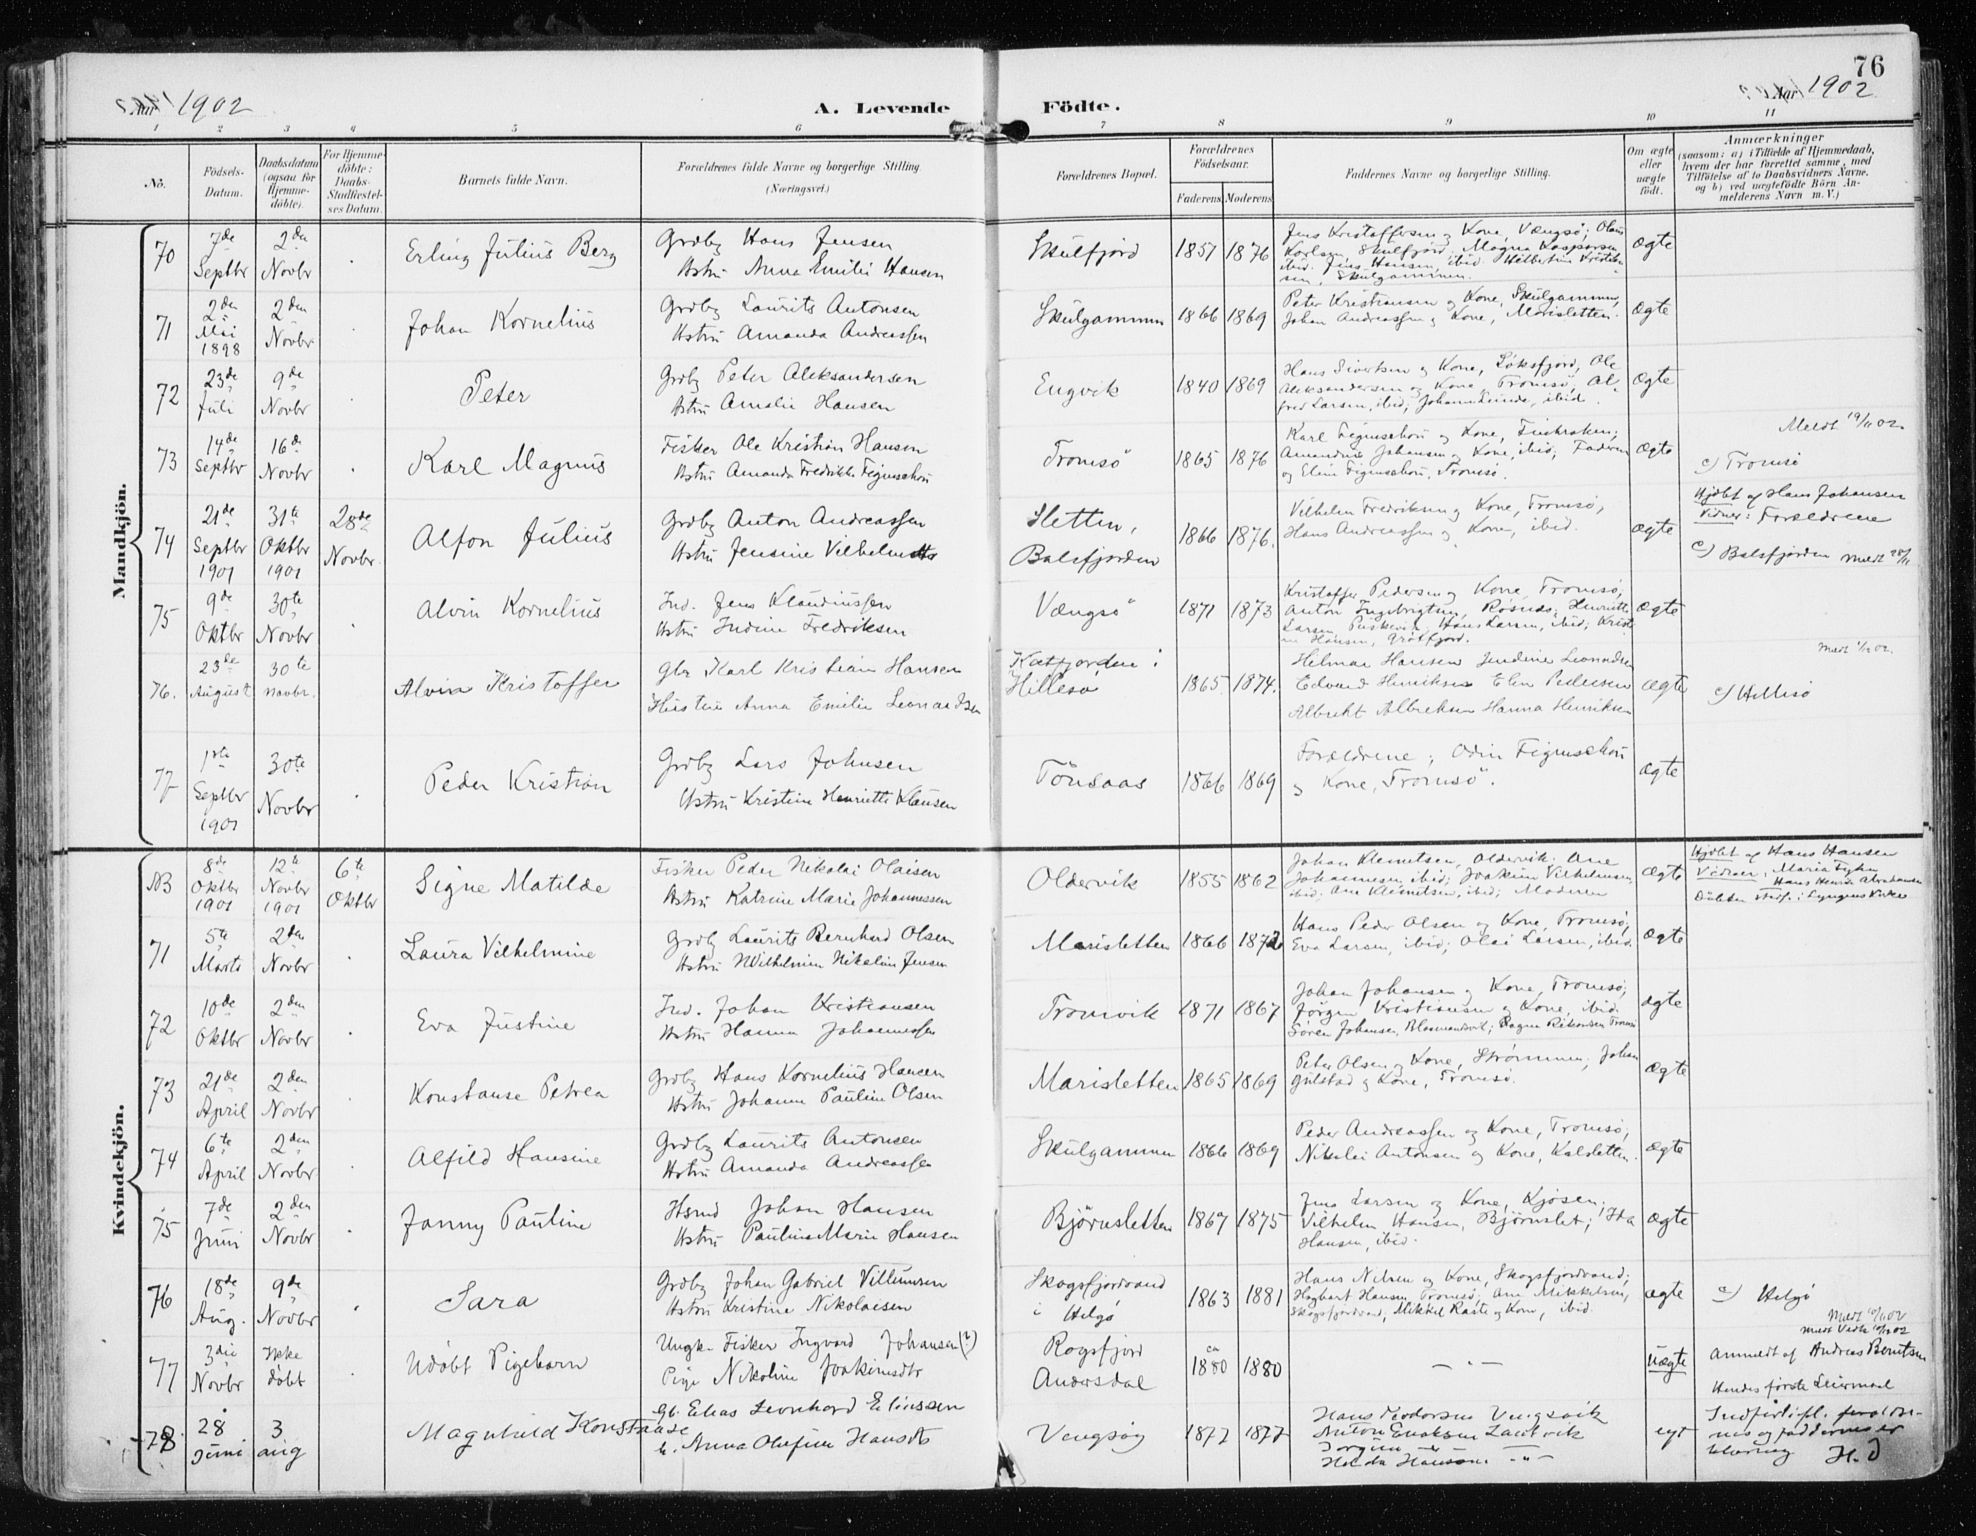 76
Aar 1902
A. Levende
Födte.
Aar 1902
1 2 3 4 5 6 7 8 9 10 11
No.
Födsels-
Datum.
Daabsdatum
(ogsaa for
Hjemme-
döbte).
For Hjemme-
döbte:
Daabs-
Stadfæstel-
ses Datum.
Barnets fulde Navn.
Forældrenes fulde Navne og borgerlige Stilling.
(Næringsvei.)
Forældrenes Bopæl.
Forældrenes
Födselsaar.
Faderens
Moderens
Faddernes Navne og borgerlige Stilling.
Om ægte
eller
uægte
födt.
Anmærkninger
(saasom: a) i Tilfælde af Hjemmedaab,
hvem der har forrettet samme, med
Tilföielse af to Daabsvidners Navne.
og b) ved uægtefödte Börn An-
melderens Navn m. V.)
Mandkjön.
70
7de Septbr
2den Novbr
Erling Julius Berg
Grdbr Hans Jensen
Hstru Anna Emilie Hansen
Skulfjord
1857 1876
Jens Kristoffersen og Kone, Vængsö; Olaus
Karlsen, Skulfjord; Magna Kaspersen,
ibid. Jens Hansen, ibid
Skulgammen.
Ægte
71
2den Mai 1898
2den Novbr
Johan Kornelius
Grdbr Laurits Antonsen
Hstru Amanda Andreassen
Skulgammen
1866 1869
Peter Kristiansen og Kone, Skulgammen,
Johan Andreassen og Kone, Marisletten.
Ægte
72
23de Juli
9de Novbr
Peter
Grdbr Peter Aleksandersen
Hstru Amalie Hansen
Engvik
1840 1869
Hans Sivertsen og Kone, Ole
Aleksandersen og Kone, Tromsö, Al-
fred Larsen, ibid; ibid.
Ægte
73
14de Septbr
16de Novbr
Karl Magnus
Fisker Ole Kristian Hansen
Hstru Amanda Fredrikke Figenschou
Tromsö
1865 1876
Karl Figenschou og Kone, Finkroken;
Johansen og Kone, ibid; Faderen
og Eline Figenschou, Tromsö.
Ægte
Meldt 19/11 02.
c) Tromsö
74
21de Septbr 1901
31te Oktbr 1901
28de Novbr.
Alfon Julius
Grdbr Anton Andreassen
Hstru Jensine Vilhelmette
Sletten,
Balsfjorden
1866 1876.
Vilhelm Fredriksen og Kone, Tromsö,
Hans Andreassen og Kone, ibid.
Ægte
Hjdbt af Hans Johansen
Vidner: Forældrene
c) Balsfjorden meldt 28/11
75
9de Oktbr
30te Novbr
Alvin Kornelius
Ind. Jens Klaudiussen
Hstru Indine Fredriksen
Vængsö
1871 1873
Kristoffer Pedersen og Kone, Tromsö,
Anton Ingebrigtsen, Rösnes; Henriette
Larsen, Hans Larsen, ibid;
Hansen, Grötfjord.
Ægte
76.
23de August
30te Novbr.
Alvin Kristoffer
Gbr Karl Kristian Hansen
Hustru Anna Emilie Leonardsen
Katfjorden i
Hillesö
1865. 1874.
Hilmar Hansen Jendine Leonardsen
Edvard Henriksen Elen Pedersen
Albrekt Albreksen Hanna Henriksen
Ægte
Meldt 1/12 02.
c) Hillesö
77
1ste Septbr 1901
30te Novbr
Peder Kristian
Grdbr Lars Johnsen
Hstru Kristine Henriette Klausen
Tönsaas
1866 1869
Forældrene; Odin Figenschou
og Kone, Tromsö.
Ægte
Kvindekjön.
8de Oktbr 1901
12te Novbr 1901
6te Oktbr
Signe Matilde
Fisker Peder Nikolai Olaisen
Hstru Katrine Marie Johannessen
Oldervik
1855 1862
Johan Klemetsen, Oldervik. Ane
Johannesen, ibid; Joakim Vilhelmsen,
ibid; Ane Klemetsen, ibid; Moderen
Ægte
Hjdbt af Hans Hansen
Vidner: Maria
Hans Henrik Abrahamsen
Daaben stadf. i Lyngens Kirke
71
5te Marts
2den Novbr
Laura Vilhelmine
Grdbr Laurits Bernhard Olsen
Hstru Wilhelmine Nikoline Jensen
Marisletten
1866 1872
Hans Peder Olsen og Kone, Tromsö,
Eva Larsen, ibid; Olai Larsen, ibid.
Ægte
72
10de Oktbr
2den Novbr
Eva Justine
Ind. Johan Kristiansen
Hstru Hanna Johannessen
Tromvik
1871 1867
Johan Johansen og Kone, Tromsö;
Jörgen Kristiansen og Kone, ibid.
Sören Johansen, Ragna Tromsö
Ægte
73
21de April
2den Novbr
Konstanse Petrea
Grdbr Hans Kornelius Hansen
Hstru Johanne Pauline Olsen
Marisletten
1865 1869
Peter Olsen og Kone, Strömmen, Johan
Gulstad og Kone, Tromsö.
Ægte
74
6te April
2den Novbr
Alfild Hansine
Grdbr Laurits Antonsen
Hstru Amanda Andreassen
Skulgammen
1866 1869
Peder Andreassen og Kone, Tromsö,
Nikolai Antonsen og Kone, Kalsletten.
Ægte
75
7de Juni
2den Novbr
Janny Pauline
Hsmd Johan Hansen
Hstru Pauline Marie Hansen
Björnsletten
1867 1875
Jens Larsen og Kone, Kjosen;
Vilhelm Hansen, Björnslet; Ida
Hansen, ibid.
Ægte
76
18de Aug.
9de Novbr
Sara
Grdbr Johan Gabriel Villumsen
Hstru Kristine Nikolaisen
Skogsfjordvand
i Helgö
1863 1881
Hans Nilsen og Kone, Skogsfjordvand;
Hagbart Hansen, Tromsö; Ane Mikkelsen,
Skogsfjordvand, Mikkel Raste og Kone, ibid.
Ægte
c) Helgö
Meldt 10/11 02
77
3die Novbr
Ikke döbt
Udöbt Pigebarn
Ungk. Fisker Ingvard Johansen (?)
Pige Nikoline Joakimsdtr
Rogsfjord
Andersdal
ca 1880 1880
— " —
Uægte
Anmeldt af Andreas Berntsen
Hendes første Leiermaal
78
28 Juni
3 aug
Magnhild Konstanse
Gb. Elias Leonhard Eliassen
h. Anna Olufine Hansdtr
Vengsöy
1877 1877
Hans Teodorsen Vengsöik
Anton Enoksen
Jörgine
Hansen — " —
egt
Indfört ifl. forældre-
nes og faddernes er
klæring H. J